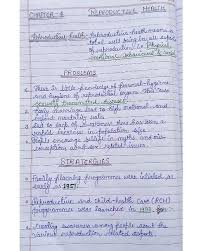 CHAPTER-4 REPRODUCTIVE HEALTH
Reproductive health Reproductive health means a
total well being in all aspects
of reproduction i.e. Physical
emotional, behavioural & social
PROBLEMS
There is little knowledge of personal hygiene
and hygiene of reproductive organs. This can
sexually transmitted diseases.
Early marriage lead to high maternal and
infant mortality rate.
Due to lack of awareness there has been a
rapid increase in population size.
People encourage myths and mis-
conception about sex related issues.
STRATERGIES
Family planning programmes were initiated as
early as 1951.
Reproductive and child health care (RCH)
programmes was launched in
Creating awareness among people about the
various reproduction related aspects.